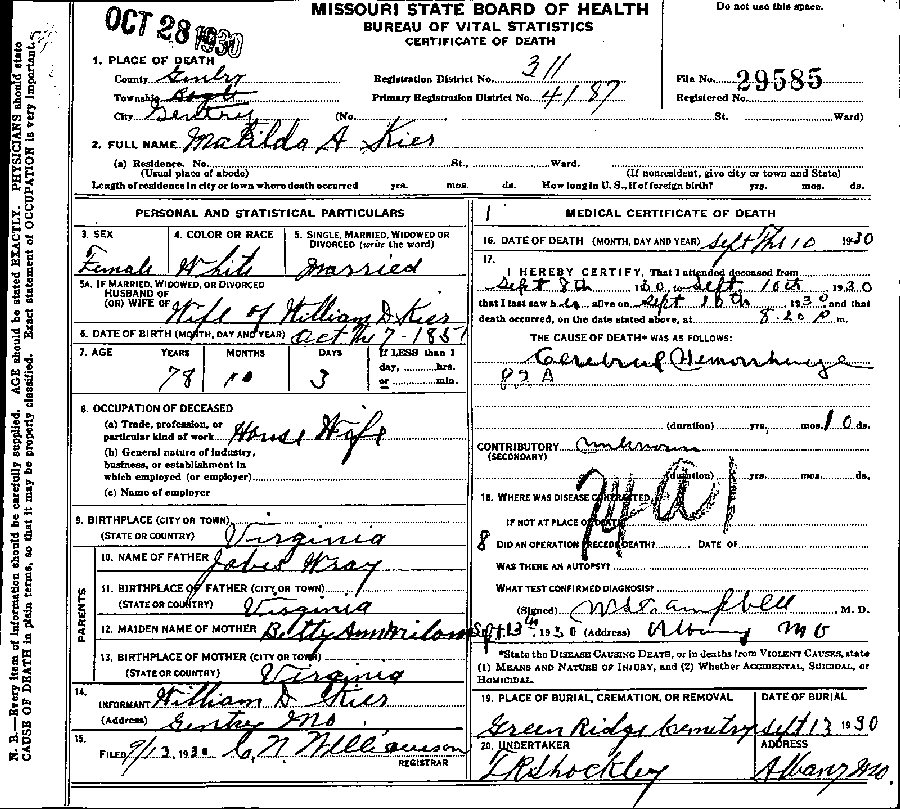 OCT 28 1930
MISSOURI STATE BOARD OF HEALTH
BUREAU OF VITAL STATISTICS
CERTIFICATE OF DEATH
Do not use this space.
1. PLACE OF DEATH
County Gentry
Registration District No. 311
File No. 29585
Township
Primary Registration District No. 4187
Registered No.
City Gentry (No. St. Ward)
2. FULL NAME Matilda A Kier
(a) Residence. No. St., Ward.
(Usual place of abode) (If nonresident, give city or town and State)
Length of residence in city or town where death occurred yrs. mos. ds. How long in U. S., if of foreign birth? yrs. mos. ds.
PERSONAL AND STATISTICAL PARTICULARS
3. SEX Female
4. COLOR OR RACE White
5. SINGLE, MARRIED, WIDOWED OR DIVORCED (write the word) Married
5A. IF MARRIED, WIDOWED, OR DIVORCED
HUSBAND OF
(OR) WIFE OF Wife of William D Kier
6. DATE OF BIRTH (MONTH, DAY AND YEAR) Oct the 7-1851
7. AGE YEARS MONTHS DAYS If LESS than 1
day, hrs.
or min.
78 10 3
8. OCCUPATION OF DECEASED
(a) Trade, profession, or
particular kind of work House Wife
(b) General nature of industry,
business, or establishment in
which employed (or employer)
(c) Name of employer
9. BIRTHPLACE (CITY OR TOWN)
(STATE OR COUNTRY) Virginia
PARENTS
10. NAME OF FATHER Jabes Wray
11. BIRTHPLACE OF FATHER (CITY OR TOWN)
(STATE OR COUNTRY) Virginia
12. MAIDEN NAME OF MOTHER Betty Ann
13. BIRTHPLACE OF MOTHER (CITY OR TOWN)
(STATE OR COUNTRY) Virginia
14. INFORMANT William D Kier
(Address) Gentry Mo.
15. FILED 9/13, 1930 C. N. Williamson
REGISTRAR
1 MEDICAL CERTIFICATE OF DEATH
16. DATE OF DEATH (MONTH, DAY AND YEAR) Sept the 10 1930
17. I HEREBY CERTIFY, That I attended deceased from
Sept 8th 1930 to Sept 10th 1930
that I last saw h alive on Sept 10th 1930 and that
death occurred, on the date stated above, at 8-20 P m.
THE CAUSE OF DEATH* WAS AS FOLLOWS:
Cerebral Hemorrhage
82 A
(duration) yrs. mos. 10 ds.
CONTRIBUTORY unknown
(SECONDARY)
(duration) yrs. mos. ds.
18. WHERE WAS DISEASE CONTRACTED
IF NOT AT PLACE OF DEATH?
8 DID AN OPERATION PRECEDE DEATH? DATE OF
WAS THERE AN AUTOPSY?
WHAT TEST CONFIRMED DIAGNOSIS?
(Signed) Campbell M. D.
Sept 13th, 1930 (Address) Albany Mo
*State the DISEASE CAUSING DEATH, or in deaths from VIOLENT CAUSES, state
(1) MEANS AND NATURE OF INJURY, and (2) Whether ACCIDENTAL, SUICIDAL, or
HOMICIDAL.
19. PLACE OF BURIAL, CREMATION, OR REMOVAL DATE OF BURIAL
Green Ridge Cemetry Sept 13 1930
20. UNDERTAKER ADDRESS
T R Shockley Albany Mo.
N. B.—Every item of information should be carefully supplied. AGE should be stated EXACTLY. PHYSICIANS should state
CAUSE OF DEATH in plain terms, so that it may be properly classified. Exact statement of OCCUPATION is very important.